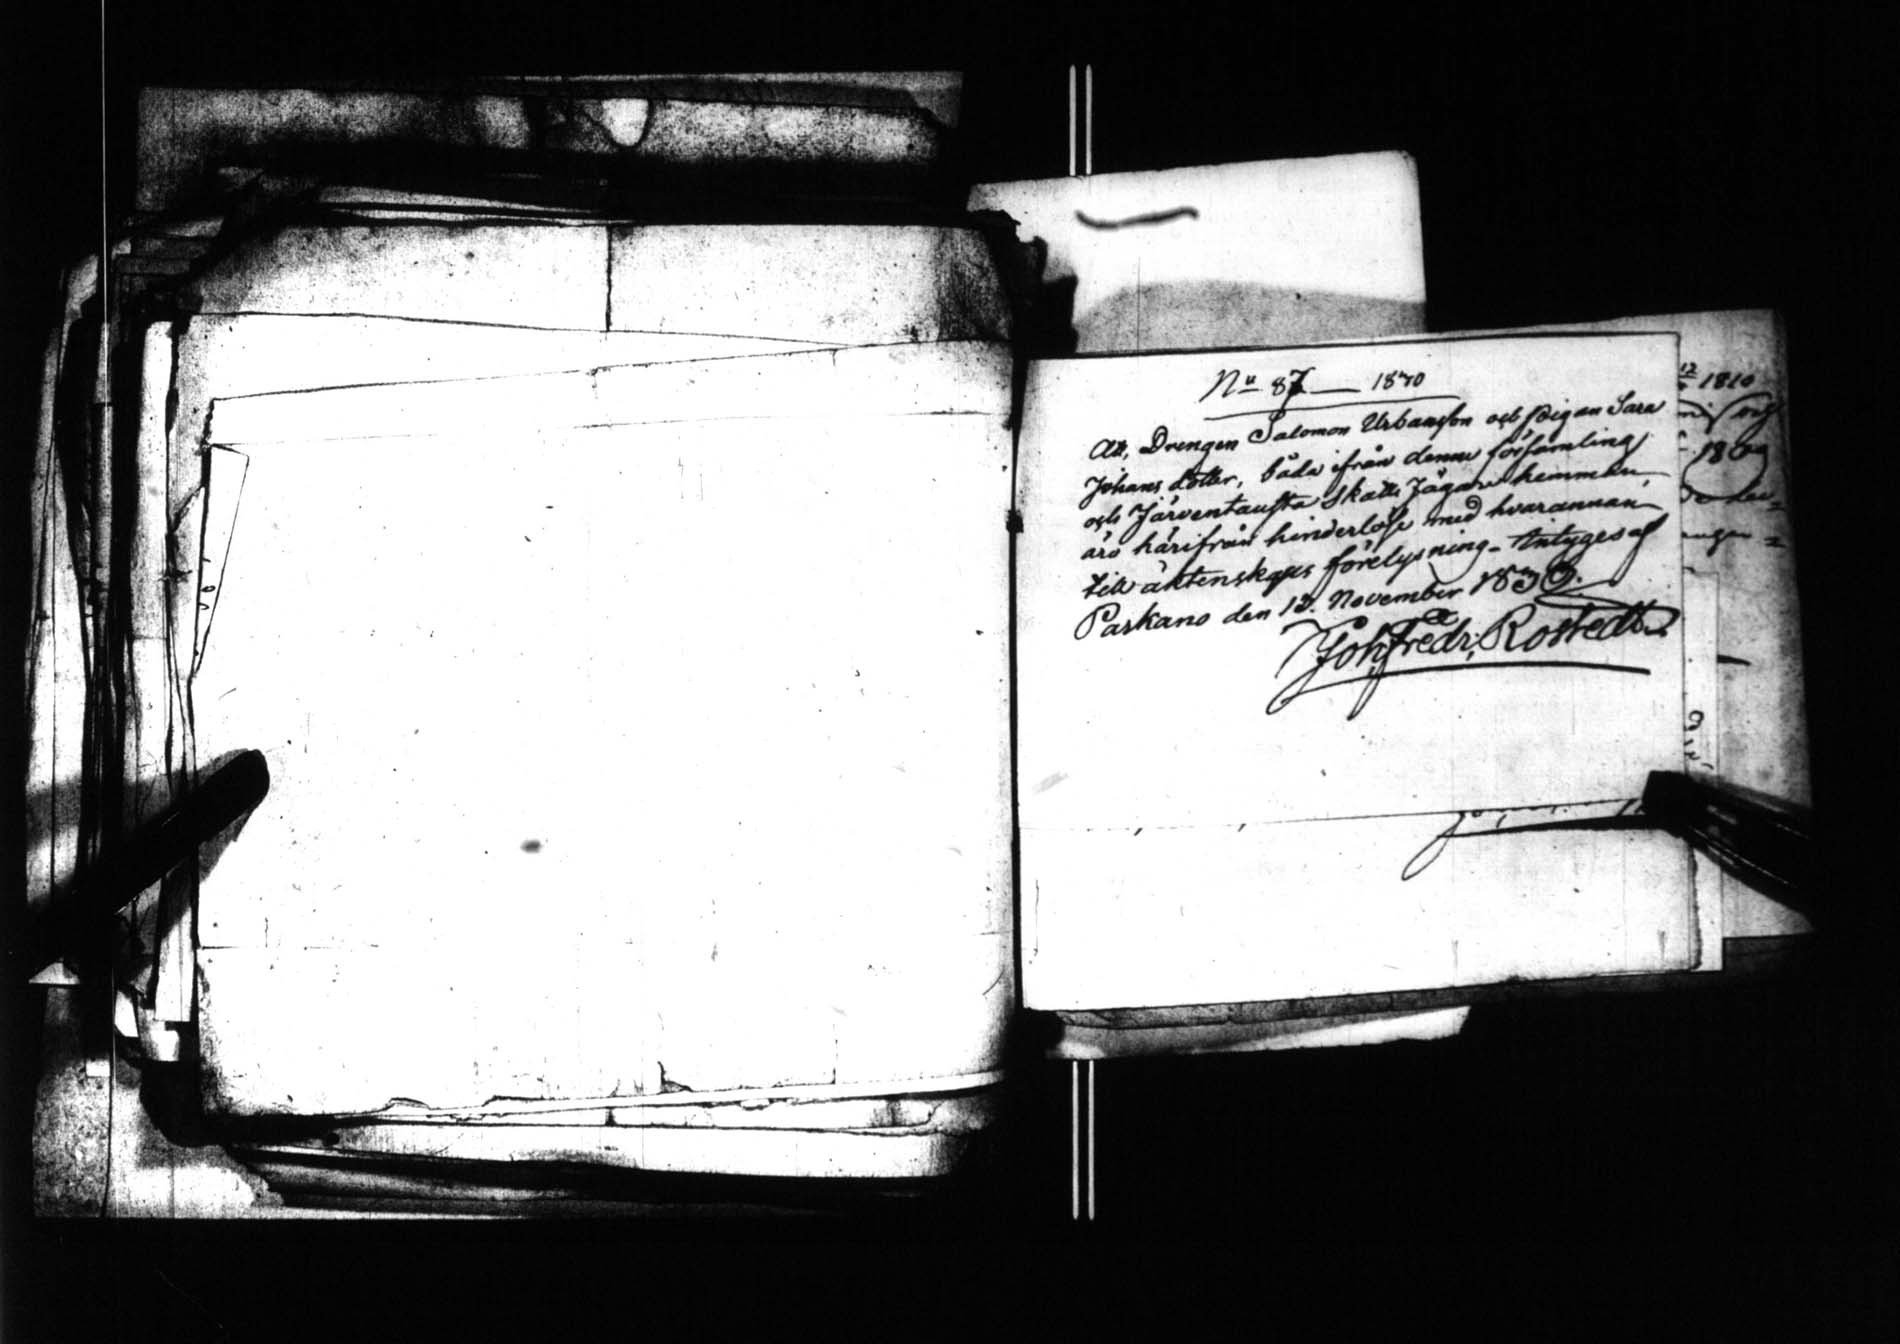 No 87 — 1870
Att, Drengen Salomon Urbansson och Pigan Sara
Johans dotter, båda ifrån denna församling
och Järventausta Skatte Jägare hemman,
äro härifrån hinderlöse med hvarannan
till äktenskaps förelysning. Intygas af
Parkano den 12. November 1870.
Joh, Fredr, Rostedt
1810